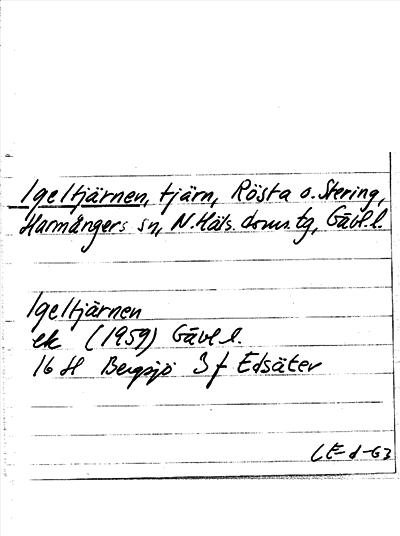 Igeltjärnen, tjärn, Rösta o. Stering,
Harmångers sn, N. Häls. doms. tg, Gävl. l.
Igeltjärnen
ek (1959) Gävl l.
16 H Bergsjö 3 f Edsäter
LE-d-63